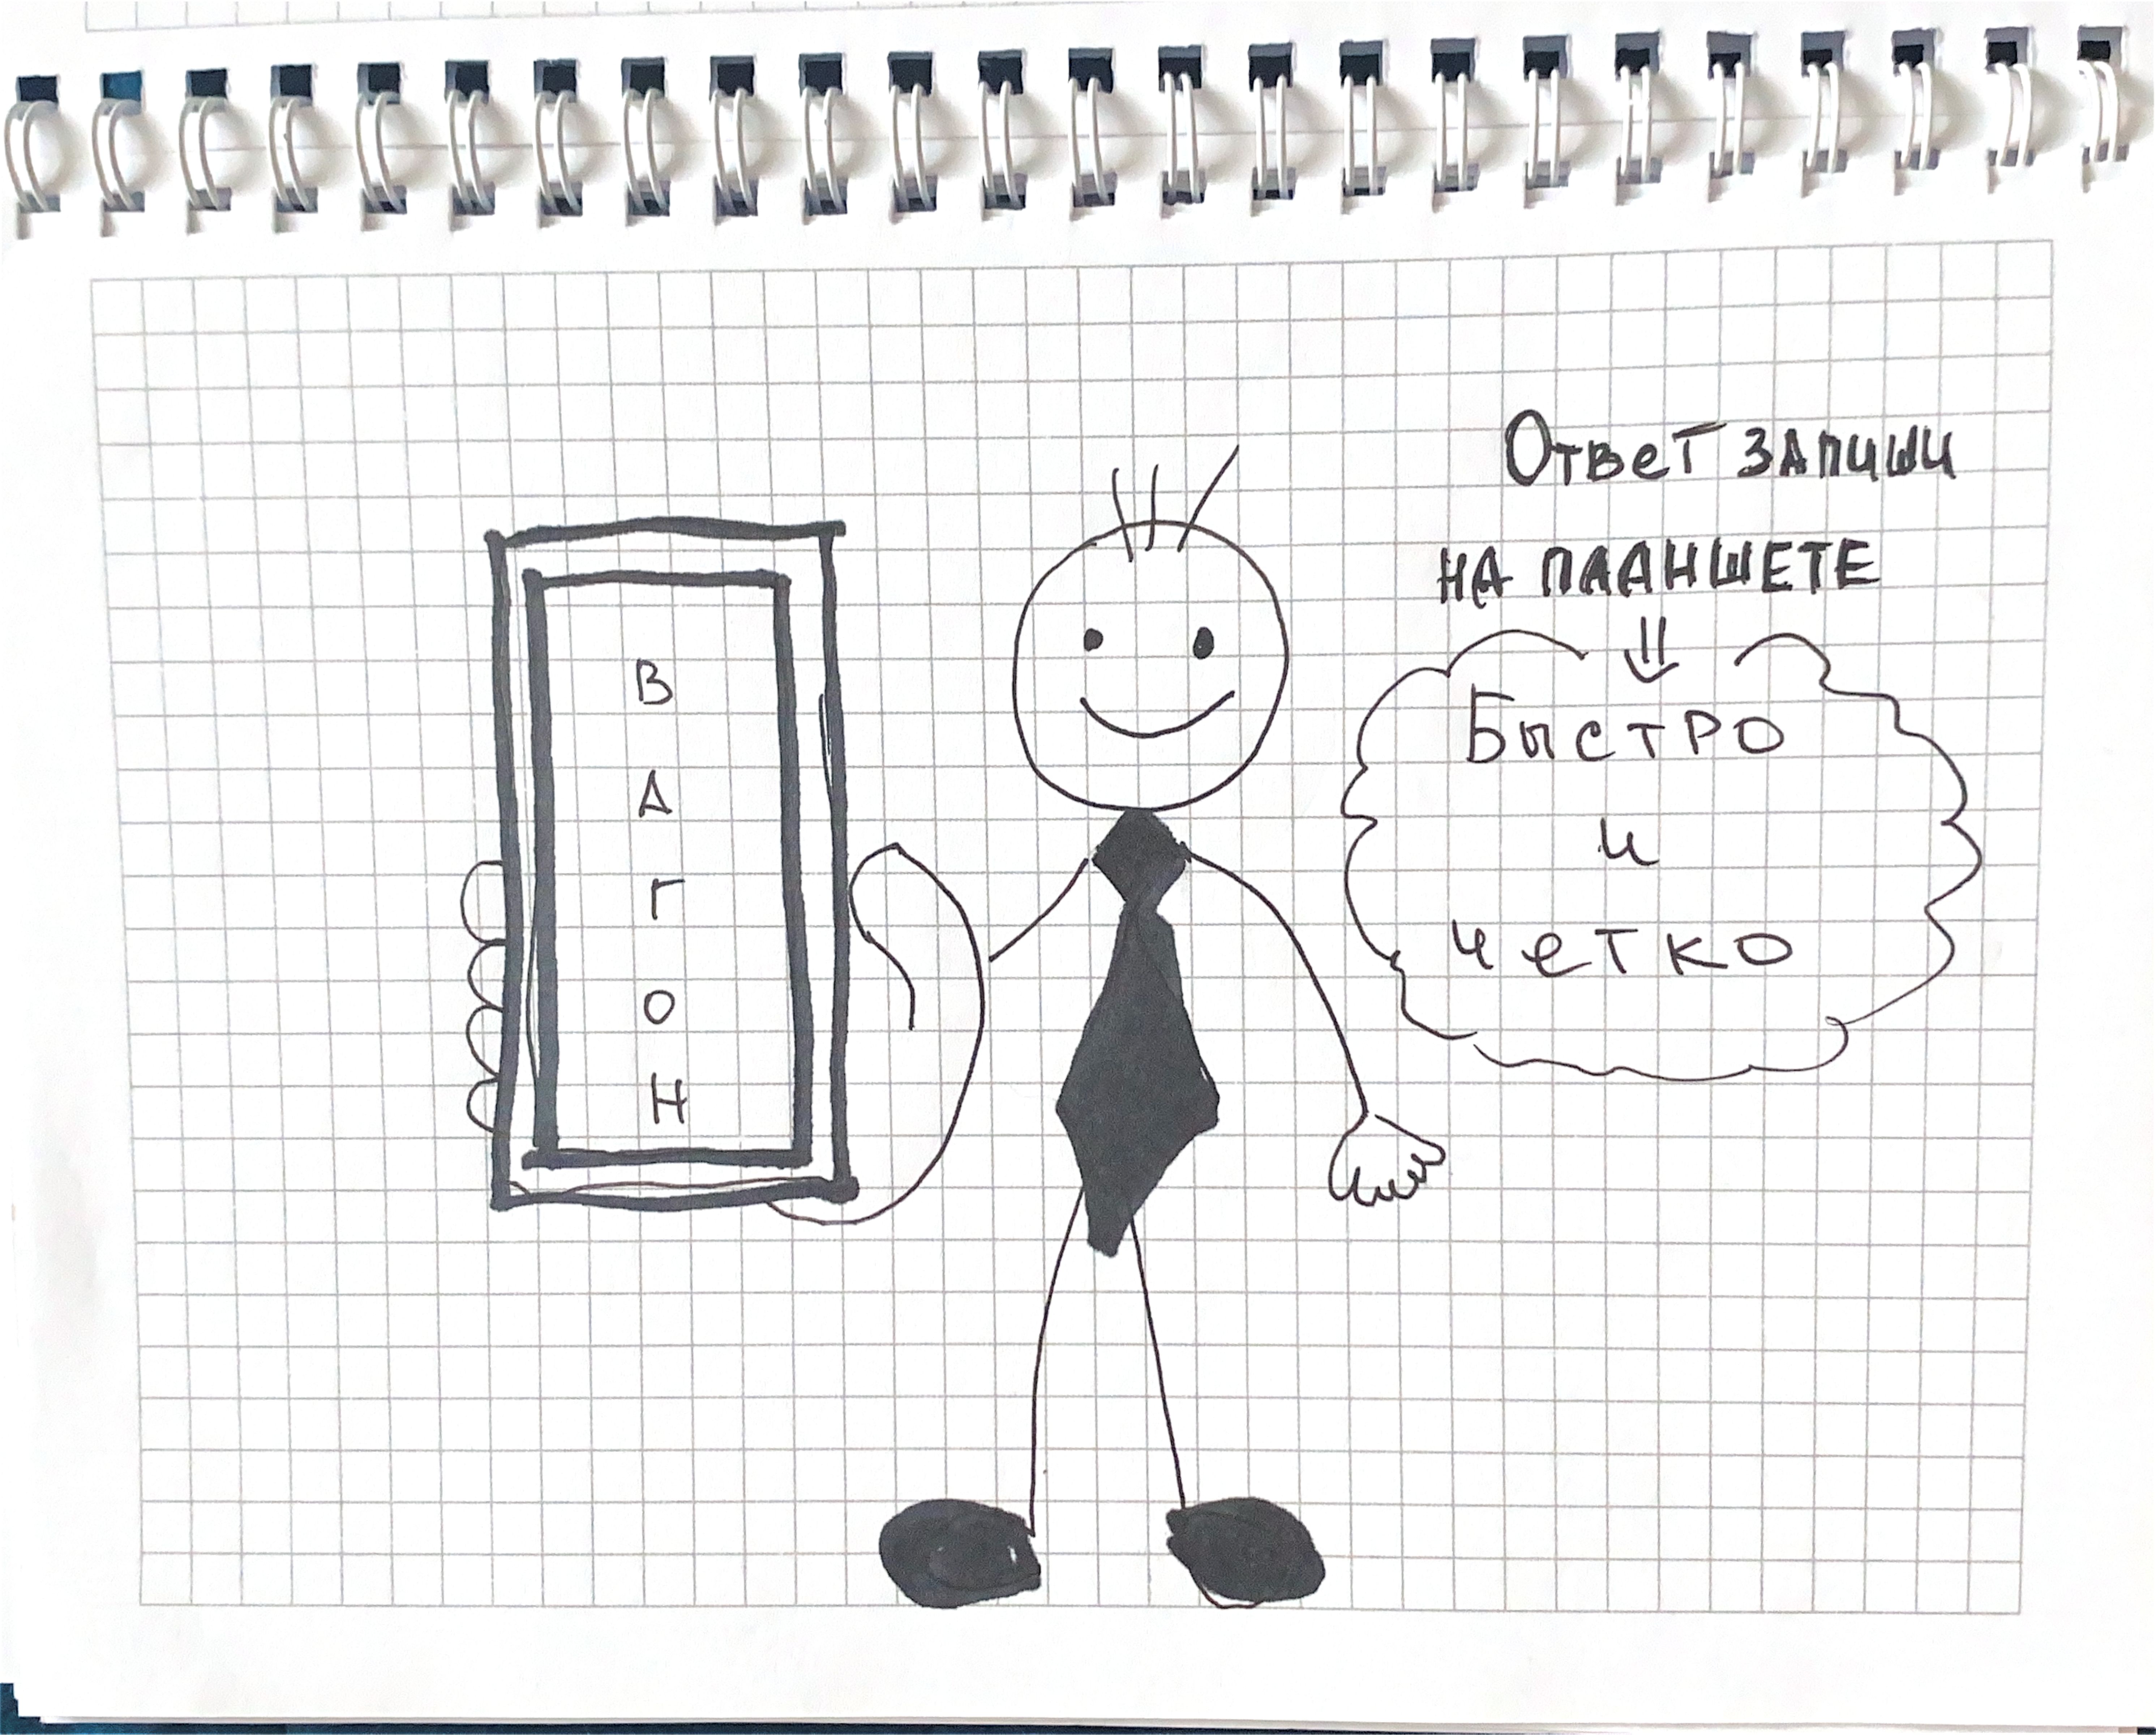 Ответ запиши
на планшете
В
А
Г
О
Н
Быстро
и
четко